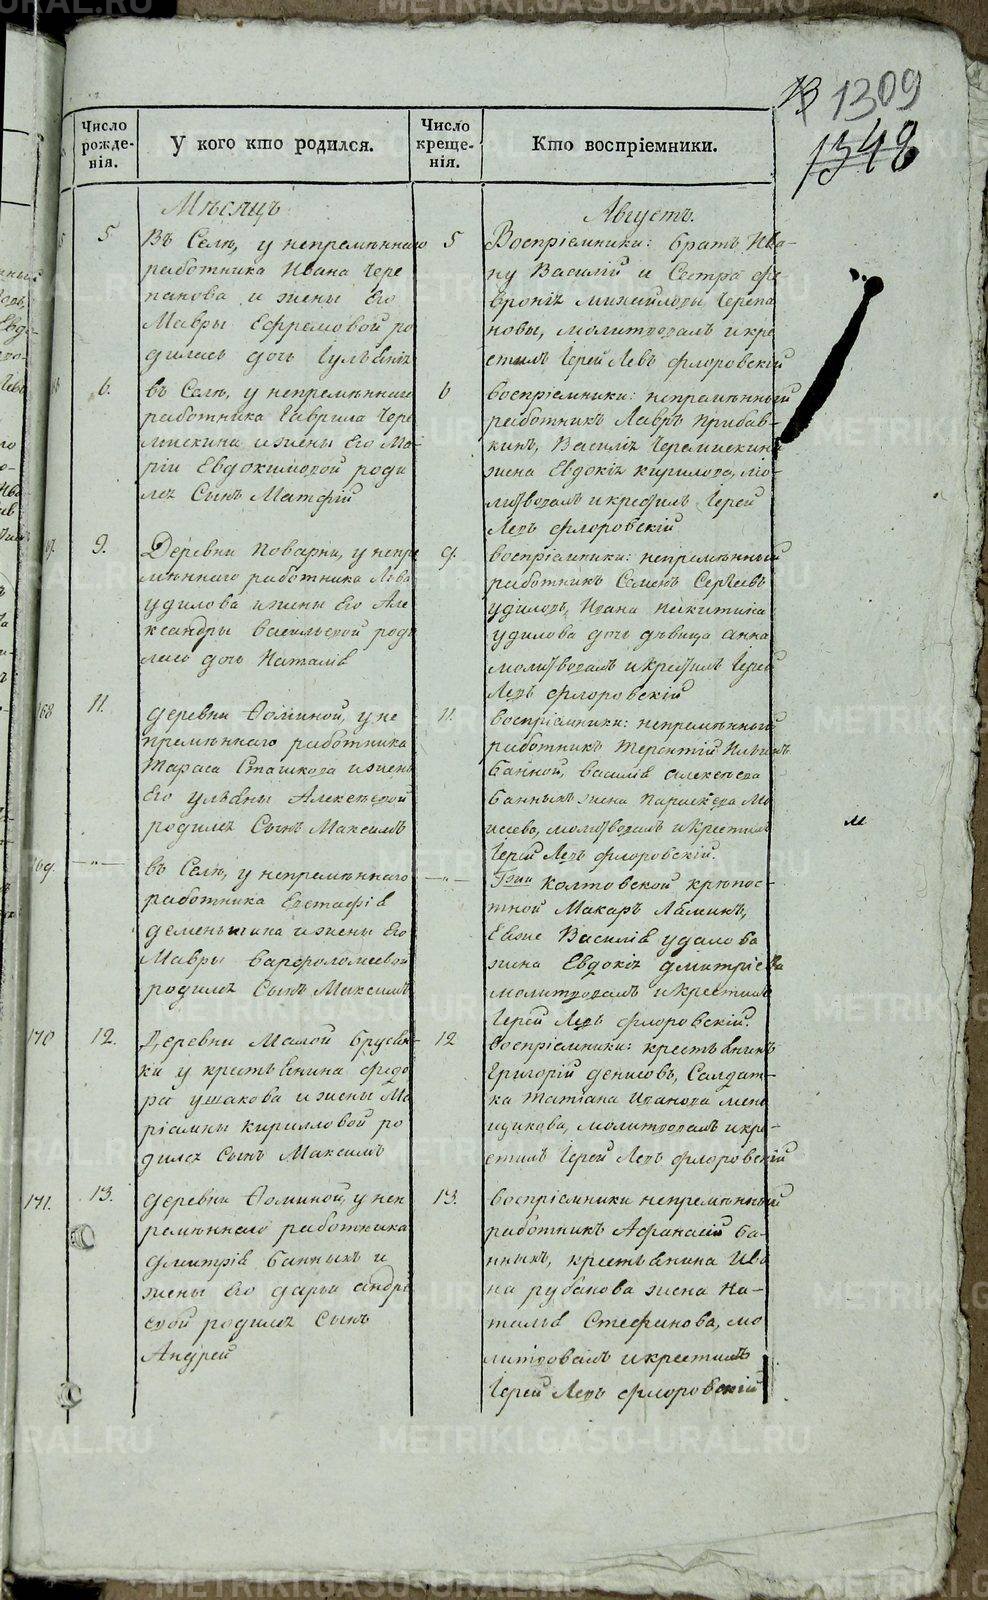 1309
1348
Число рожденія.
У кого кто родился.
Число крещенія.
Кто воспріемники.
Мѣсяцъ
Августъ.
5
Въ Селѣ, у непремѣннаго
работника Ивана Чере
панова и жены Его
Мавры Ефремовой ро
дилась дочь
5
Воспріемники: братъ Ива-
ну Василій и Сестра Фе
вронія Михайловы Черепа
новы, молитвовалъ и кре
стилъ Іерей Левъ Флоровскій
6.
въ Селѣ, у непремѣннаго
работника Гаврила Чере
мискина и жены Его Ма
ріи Евдокимовой роди
лся Сынъ Матфій
6
воспріемники: непремѣнный
работникъ Лавръ Прибав-
кинъ, Василія Черемискина
жена Евдокія Кирилова, мо-
литвовалъ и крестилъ Іерей
Левъ Флоровскій
9.
Деревни Поварни, у непре
мѣннаго работника Льва
Удилова и жены Его Але
ксандры Васильевой роди
лась дочь Наталія
9.
воспріемники: непремѣнный
работникъ Семенъ Сергѣевъ
Удиловъ, Ивана Никитина
Удилова дочь дѣвица Анна
молитвовалъ и крестилъ Іерей
Левъ Флоровскій
168
11.
деревни Фоминой, у не
премѣннаго работника
Тараса Сташкова и жены
Его Ульяны Алексѣевой
родился Сынъ Максимъ
11.
воспріемники: непремѣнного
работникъ Терентій Ильинъ
Банной, Василія Алексѣева
Банныхъ жена Параскева Мо
исеева, молитвовалъ и крестилъ
Іерей Левъ Флоровскій.
169.
— " —
въ Селѣ, у непремѣннаго
работника Евстафія
Деменьшина и жены Его
Мавры Варфоломеевой
родился Сынъ Максимъ
— " —
Гжи Колтовской крѣпос-
тной Макаръ Ляминъ,
Ея же Василія Удалова
жена Евдокія Дмитріева
молитвовалъ и крестилъ
Іерей Левъ Флоровскій.
170
12.
Деревни Малой Брусян-
ки у крестьянина Федо
ра Ушакова и жены Ма
ріамны Кирилловой ро
дился Сынъ Максимъ
12
воспріемники: крестьянинъ
Григорій Денисовъ, Солдат-
ка Татіана Иванова Мень
щикова, молитвовалъ и кре-
стилъ Іерей Левъ Флоровскій
171.
13.
деревни Фоминой, у неп
ремѣннаго работника
Дмитрія Банныхъ и
жены Его Дарьи Андре
евой родился Сынъ
Андрей
13.
воспріемники непремѣнный
работникъ Афанасій Ба-
нныхъ, крестьянина Ива
на Рубанова жена На-
талья Стефанова, мо
литвовалъ и крестилъ
Іерей Левъ Флоровскій
METRIKI.GASO-URAL.RU